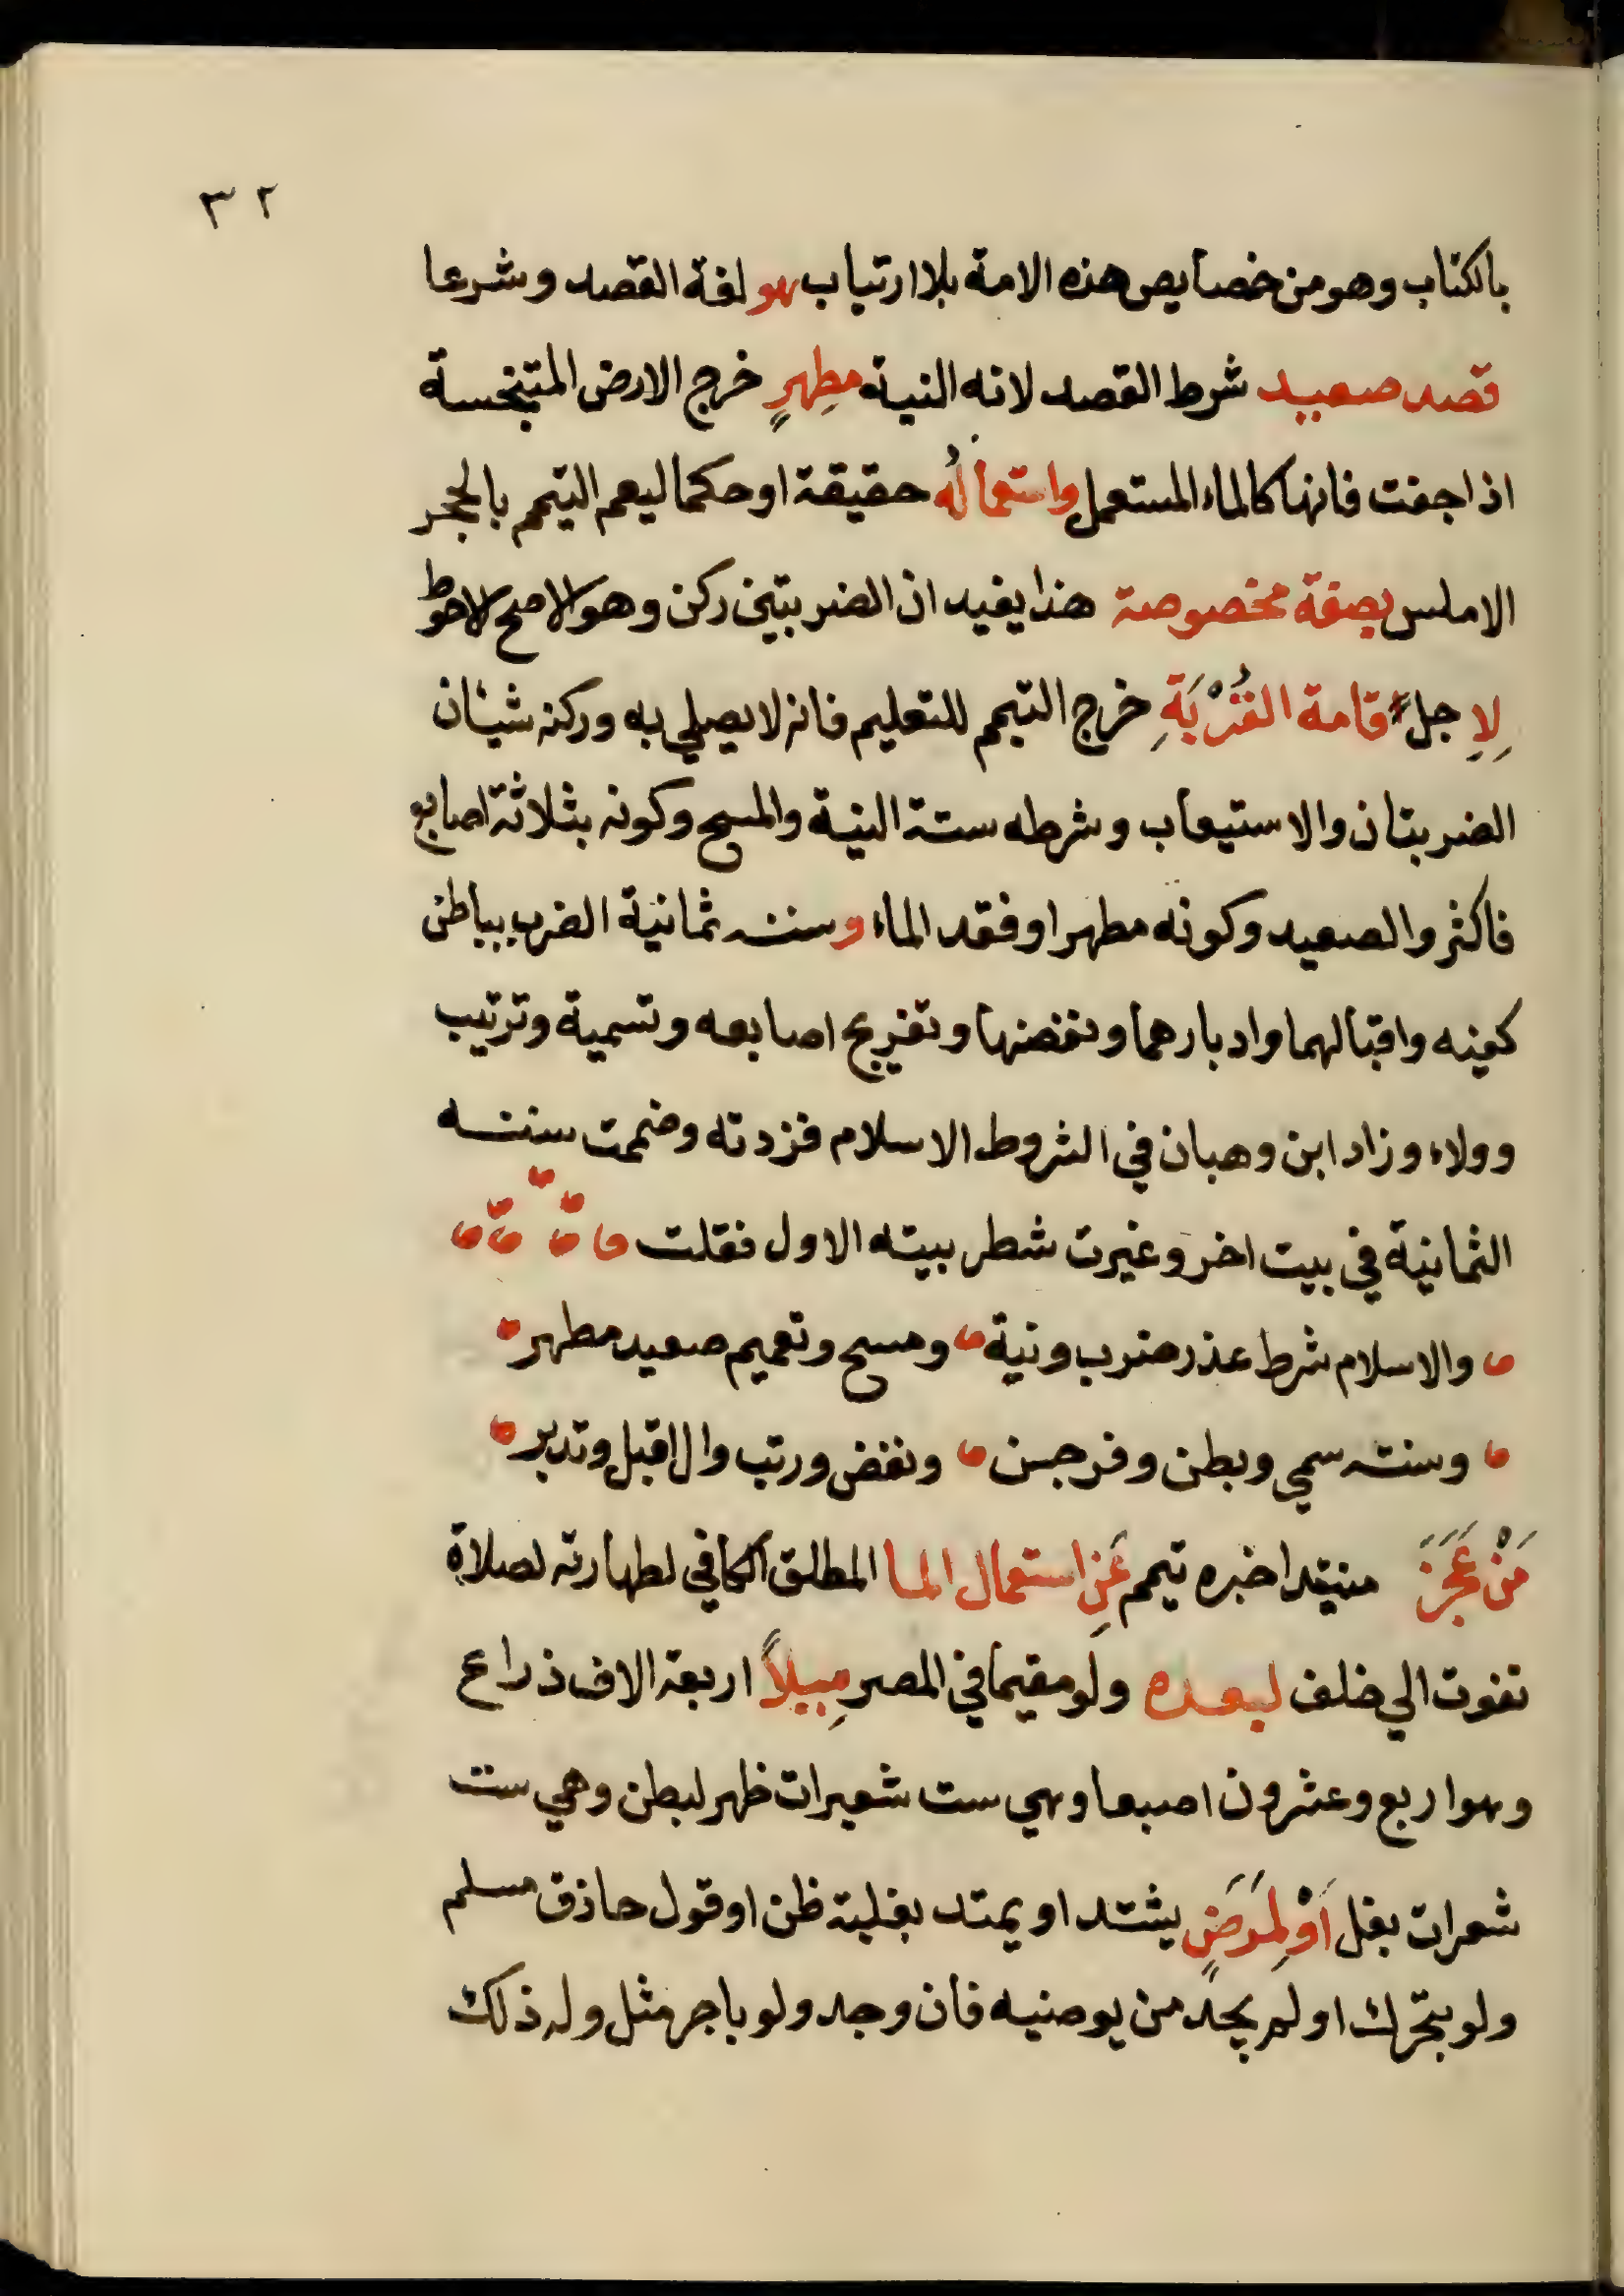 ٣٢
بالكتاب وهو من خصايص هذه الامة بلا ارتياب هو لغة القصد وشرعا
قصد صعيد شرط القصد لانه النية مطهرٍ خرج الارض المتنجسة
اذا جفت فانها كالماء المستعمل واستعمالُه حقيقة او حكما ليعم التيمم بالحجر
الاملس بصفة مخصوصة هذا يفيد ان الضربتين ركن وهو الاصح الاحوط
لِاِجل اقامة القُرْبَةِ خرج التيمم للتعليم فانه لا يصلي به وركنه شيئان
الضربتان والاستيعاب وشرطه ستة النية والمسح وكونه بثلاثة اصابع
فاكثر والصعيد وكونه مطهرا وفقد الماء وسننه ثمانية الضرب بباطن
كفيه واقبالهما وادبارهما ونفضهما وتفريج اصابعه وتسمية وترتيب
وولاء وزاد ابن وهبان في الشروط الاسلام فزدته وضممت سننه
الثمانية في بيت اخر وغيرت شطر بيته الاول فقلت
والاسلام شرط عذر ضرب ونية ومسح وتعميم صعيد مطهر
وسننه سمي وبطن وفرجن ونفض ورتب وال اقبل وتدبر
مَنْ عَجَزَ مبتدا خبره تيمم عَنِ استعمال الما المطلق الكافي لطهارته لصلاة
تفوت الي خلف لبعده ولو مقيما في المصر مِيلاً اربعة الاف ذراع
وهو اربع وعشرون اصبعا وهي ست شعيرات ظهر لبطن وهي ست
شعرات بغل اَوْ لِمَرَضٍ يشتد او يمتد بغلبة ظن او قول حاذق مسلم
ولو بتحرك او لم يجد من يوضيه فان وجد ولو باجر مثل وله ذلك